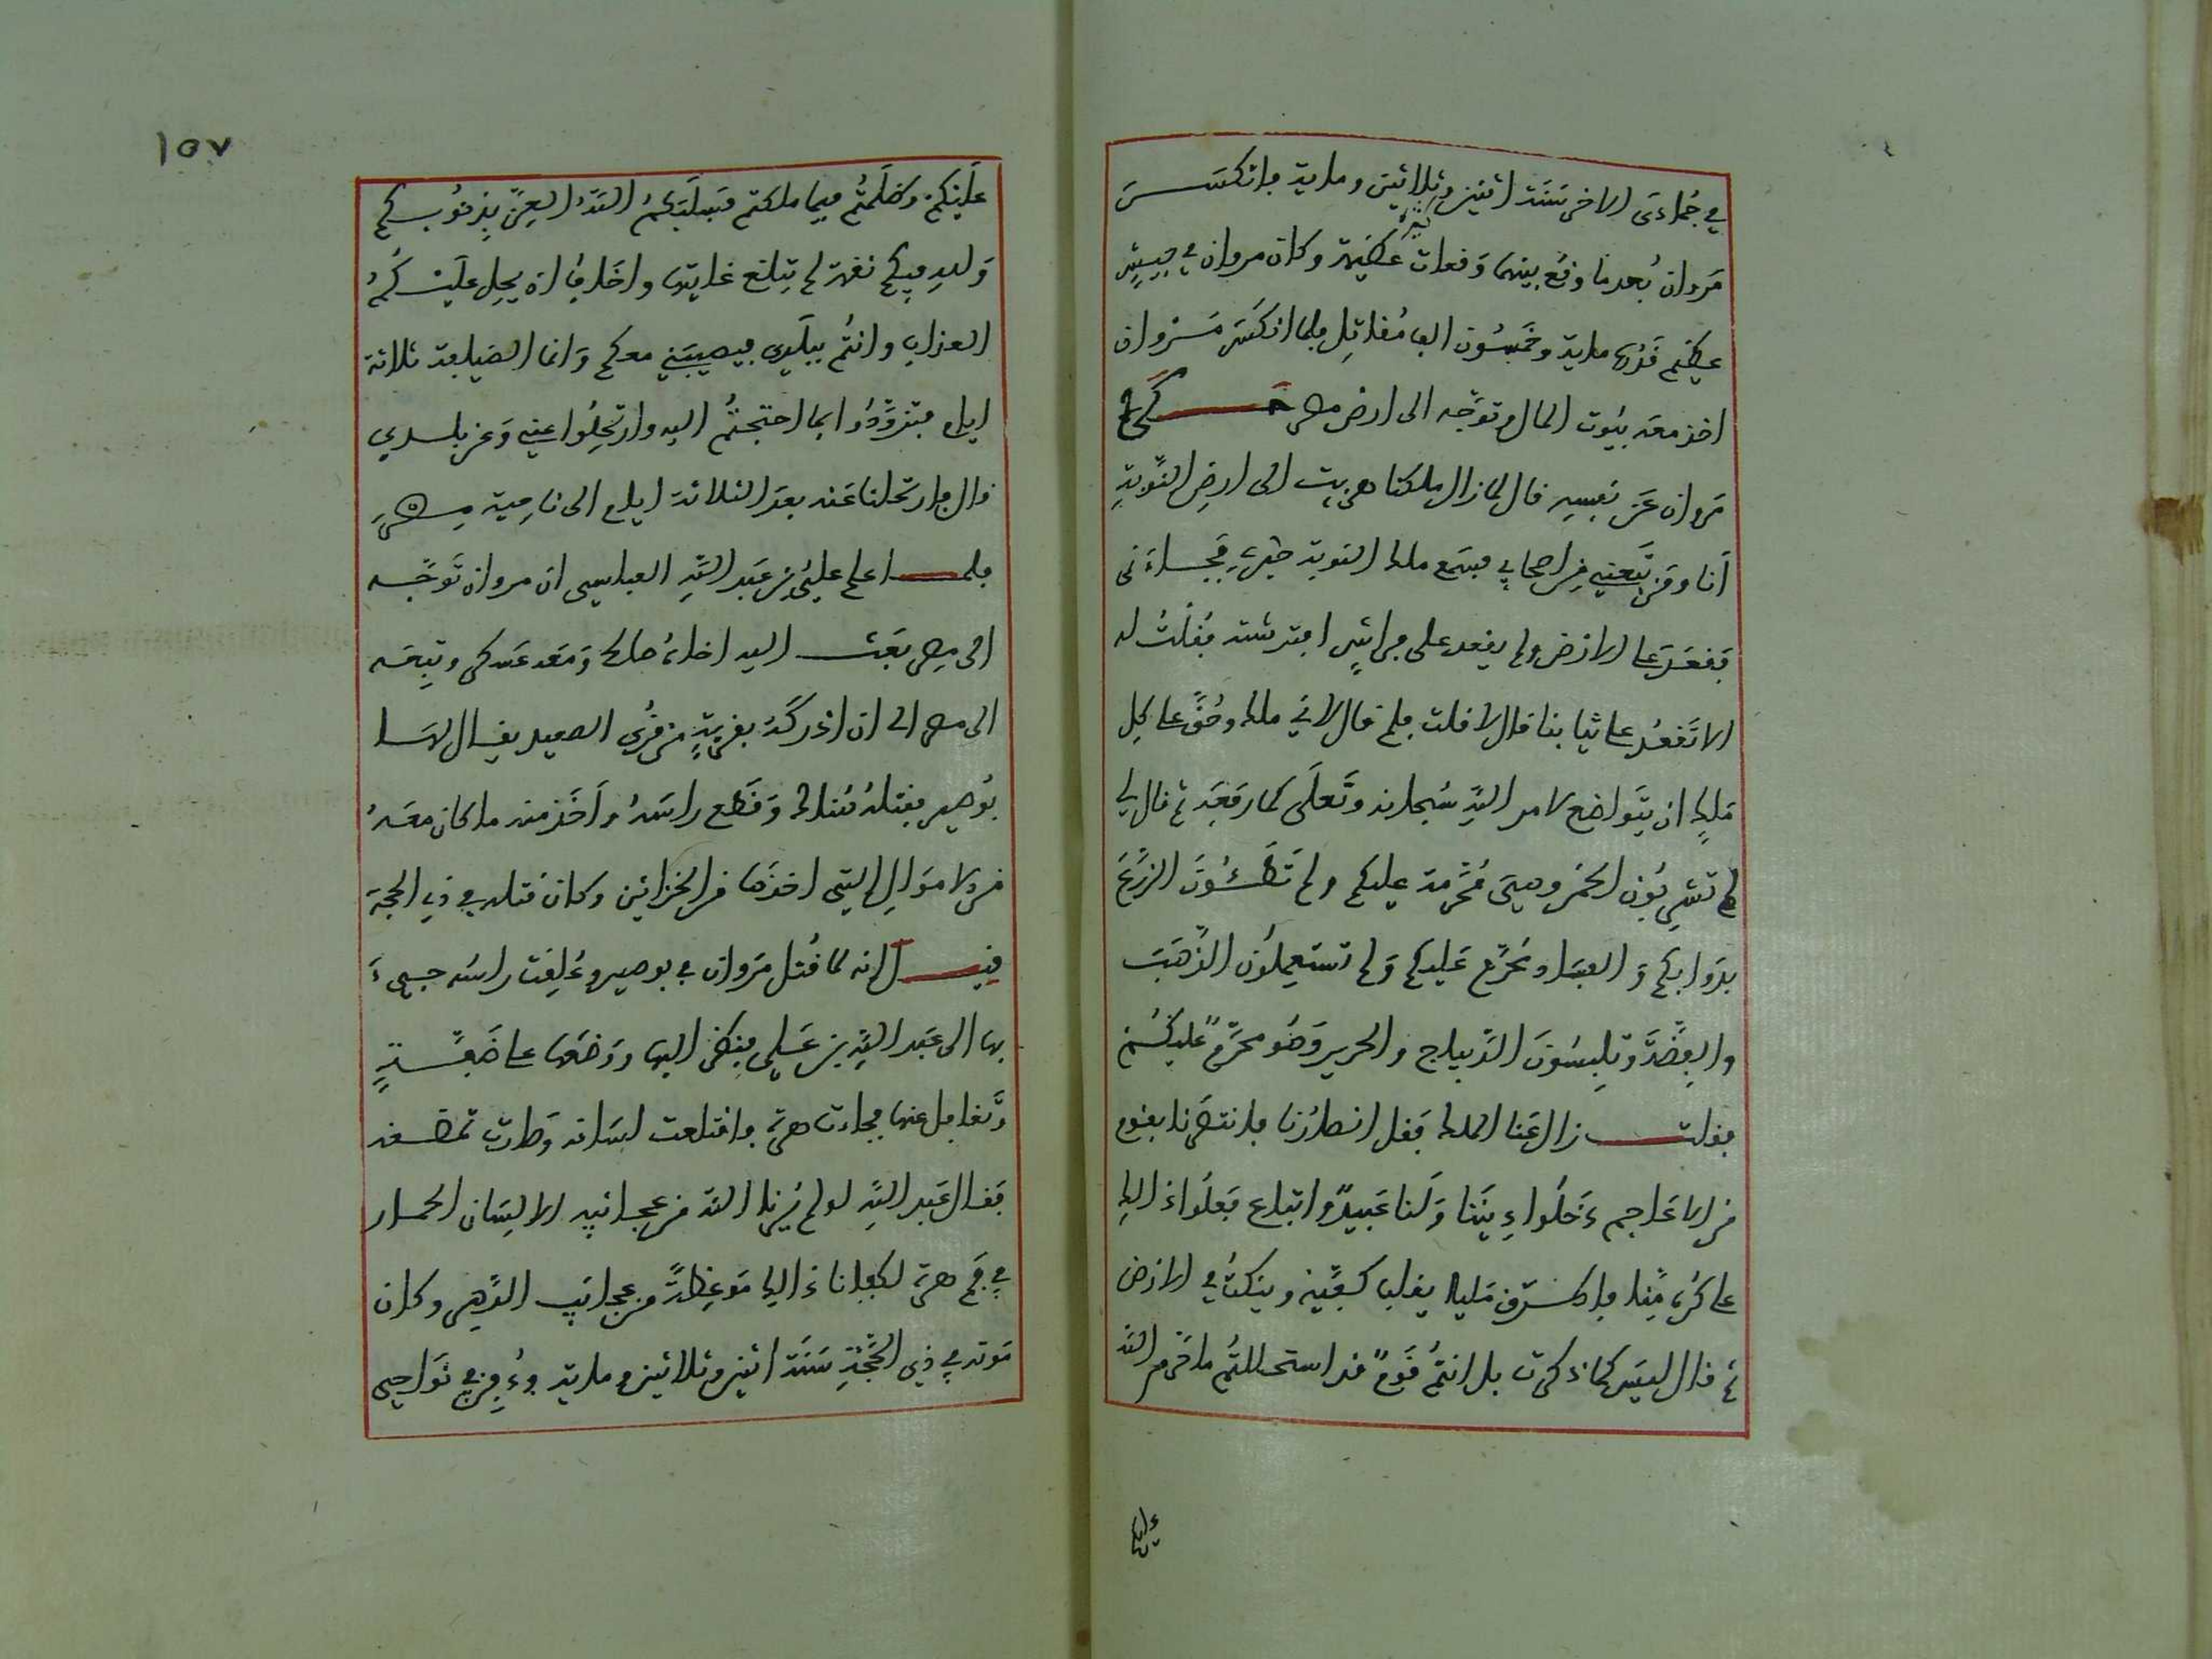 في جُمادى الاخر سَنَة اثنين وثلاثين وماية فانكسَــر
مَروان بُعدما وقع بينهما وَقعات كثيرة عظيمة وكان مروان في جيشٍ
عظيم قَدرُها ماية وخَمسُون الف مُقاتِل فلما انكسَر مَـرْوان
اخذ معه بيُوت المال وتوَجّه الى ارض مصر حَــكى
مَروان عَن نَفسِه قال لما زال ملكنا هربت الى ارضِ النّوبةِ
أنا ومَن تَبَعني مِن اصحابي فسَمع ملك النوبة خبري فَجـاءَني
فقعَدَ على الارض ولم يقعد على فراشٍ افترشته فقُلتُ له
الا تَقعُد على ثيابنا قال لا قلت فلم قال لاني ملك وحُقّ على كل
مَلِكٍ ان يتَواضع لامر اللهِ سُبحانه وتَعلَى كما رفعَه ثم قال لي
لم تشربُون الخمر وهيَ مُحَرّمة عليكم ولم تَطـئُونَ الزّرعَ
بدَوابكم وَ الفسَاد مُحَرّم عَليكم وَلم تستَعمِلُون الذّهَبَ
والفِضّة وَتلبسُونَ الدّيباج والحرير وَهُو محرّمٌ عليْكُـم
فقلتـــ زال عَنا الملك فَقل انصارُنا فانتصَرنا بقوم
من الاعاجم دَخلُوا دِيننا وَلَنا عَبيدٌ واتباع فَعلُوا ذالك
على كُره مِّنا فاطــرَق مَليا يقلب كفَّيه وينكتُ في الارض
ثم قال ليسَ كما ذكرت بل انتمُ قومٌ قد استحللتُم ما حَرم الله
عليكم
١٥٧
عَليْكُم وظلَمتُم فيما ملكتم فسَلَبَكمُ اللهُ العِزّ بِذنُوبـكم
وَلله فيكم نقمة لم تبلغ غايتها واخَافُ ان يحل عليـكُمُ
العذاب وانتُم ببلَدي فيصيبَني معكم وَانما الضيافة ثلاثة
ايام فتزوّدُوا بما احتجتُم اليه وارتحِلُوا عني وَعن بلـدي
قال فارتحلنا عنه بعدَ الثلاثة ايام الى ناحِية مـصر
فلمــا علم عليُ بن عَبد اللهِ العباسي ان مروان تَوَجّــه
الى مِصر بَعَثــ اليه اخاهُ صالح وَمَعه عَسكر وتبِعَـه
الى مصر الى ان ادْركَهُ بقريَةٍ من قُرى الصعيد يقـال لهَـا
بُوصير فقتلهُ هُنَالك وَقَطع راسَهُ وأخَذ منه ما كان معَـهُ
من الامَوالِ التي اخذهَا من الخزائن وكانَ قتله في ذي الحجة
قيــل انه لما قُتل مَروان في بوصير وعُلِقت راسُه جـيءَ
بها الى عَبد اللهِ بن عَـلي فنظر اليها ووَضَعَها على ضَفَّـةٍ
وتَغافل عنها فجاءت هرة فاقتلعت لسَانه وَصارت تمضـغه
فَقـال عَبد اللهِ لو لم يُرينا الله من عجـائبِه الا لِسَان الحمـار
في فَم هرة لكفانا ذالك مَوعِظةً من عجائب الدّهر وكان
مَوته في ذي الحَجّةِ سَنَة اثنين وثلاثين وماية ودُفِن في نَواحي